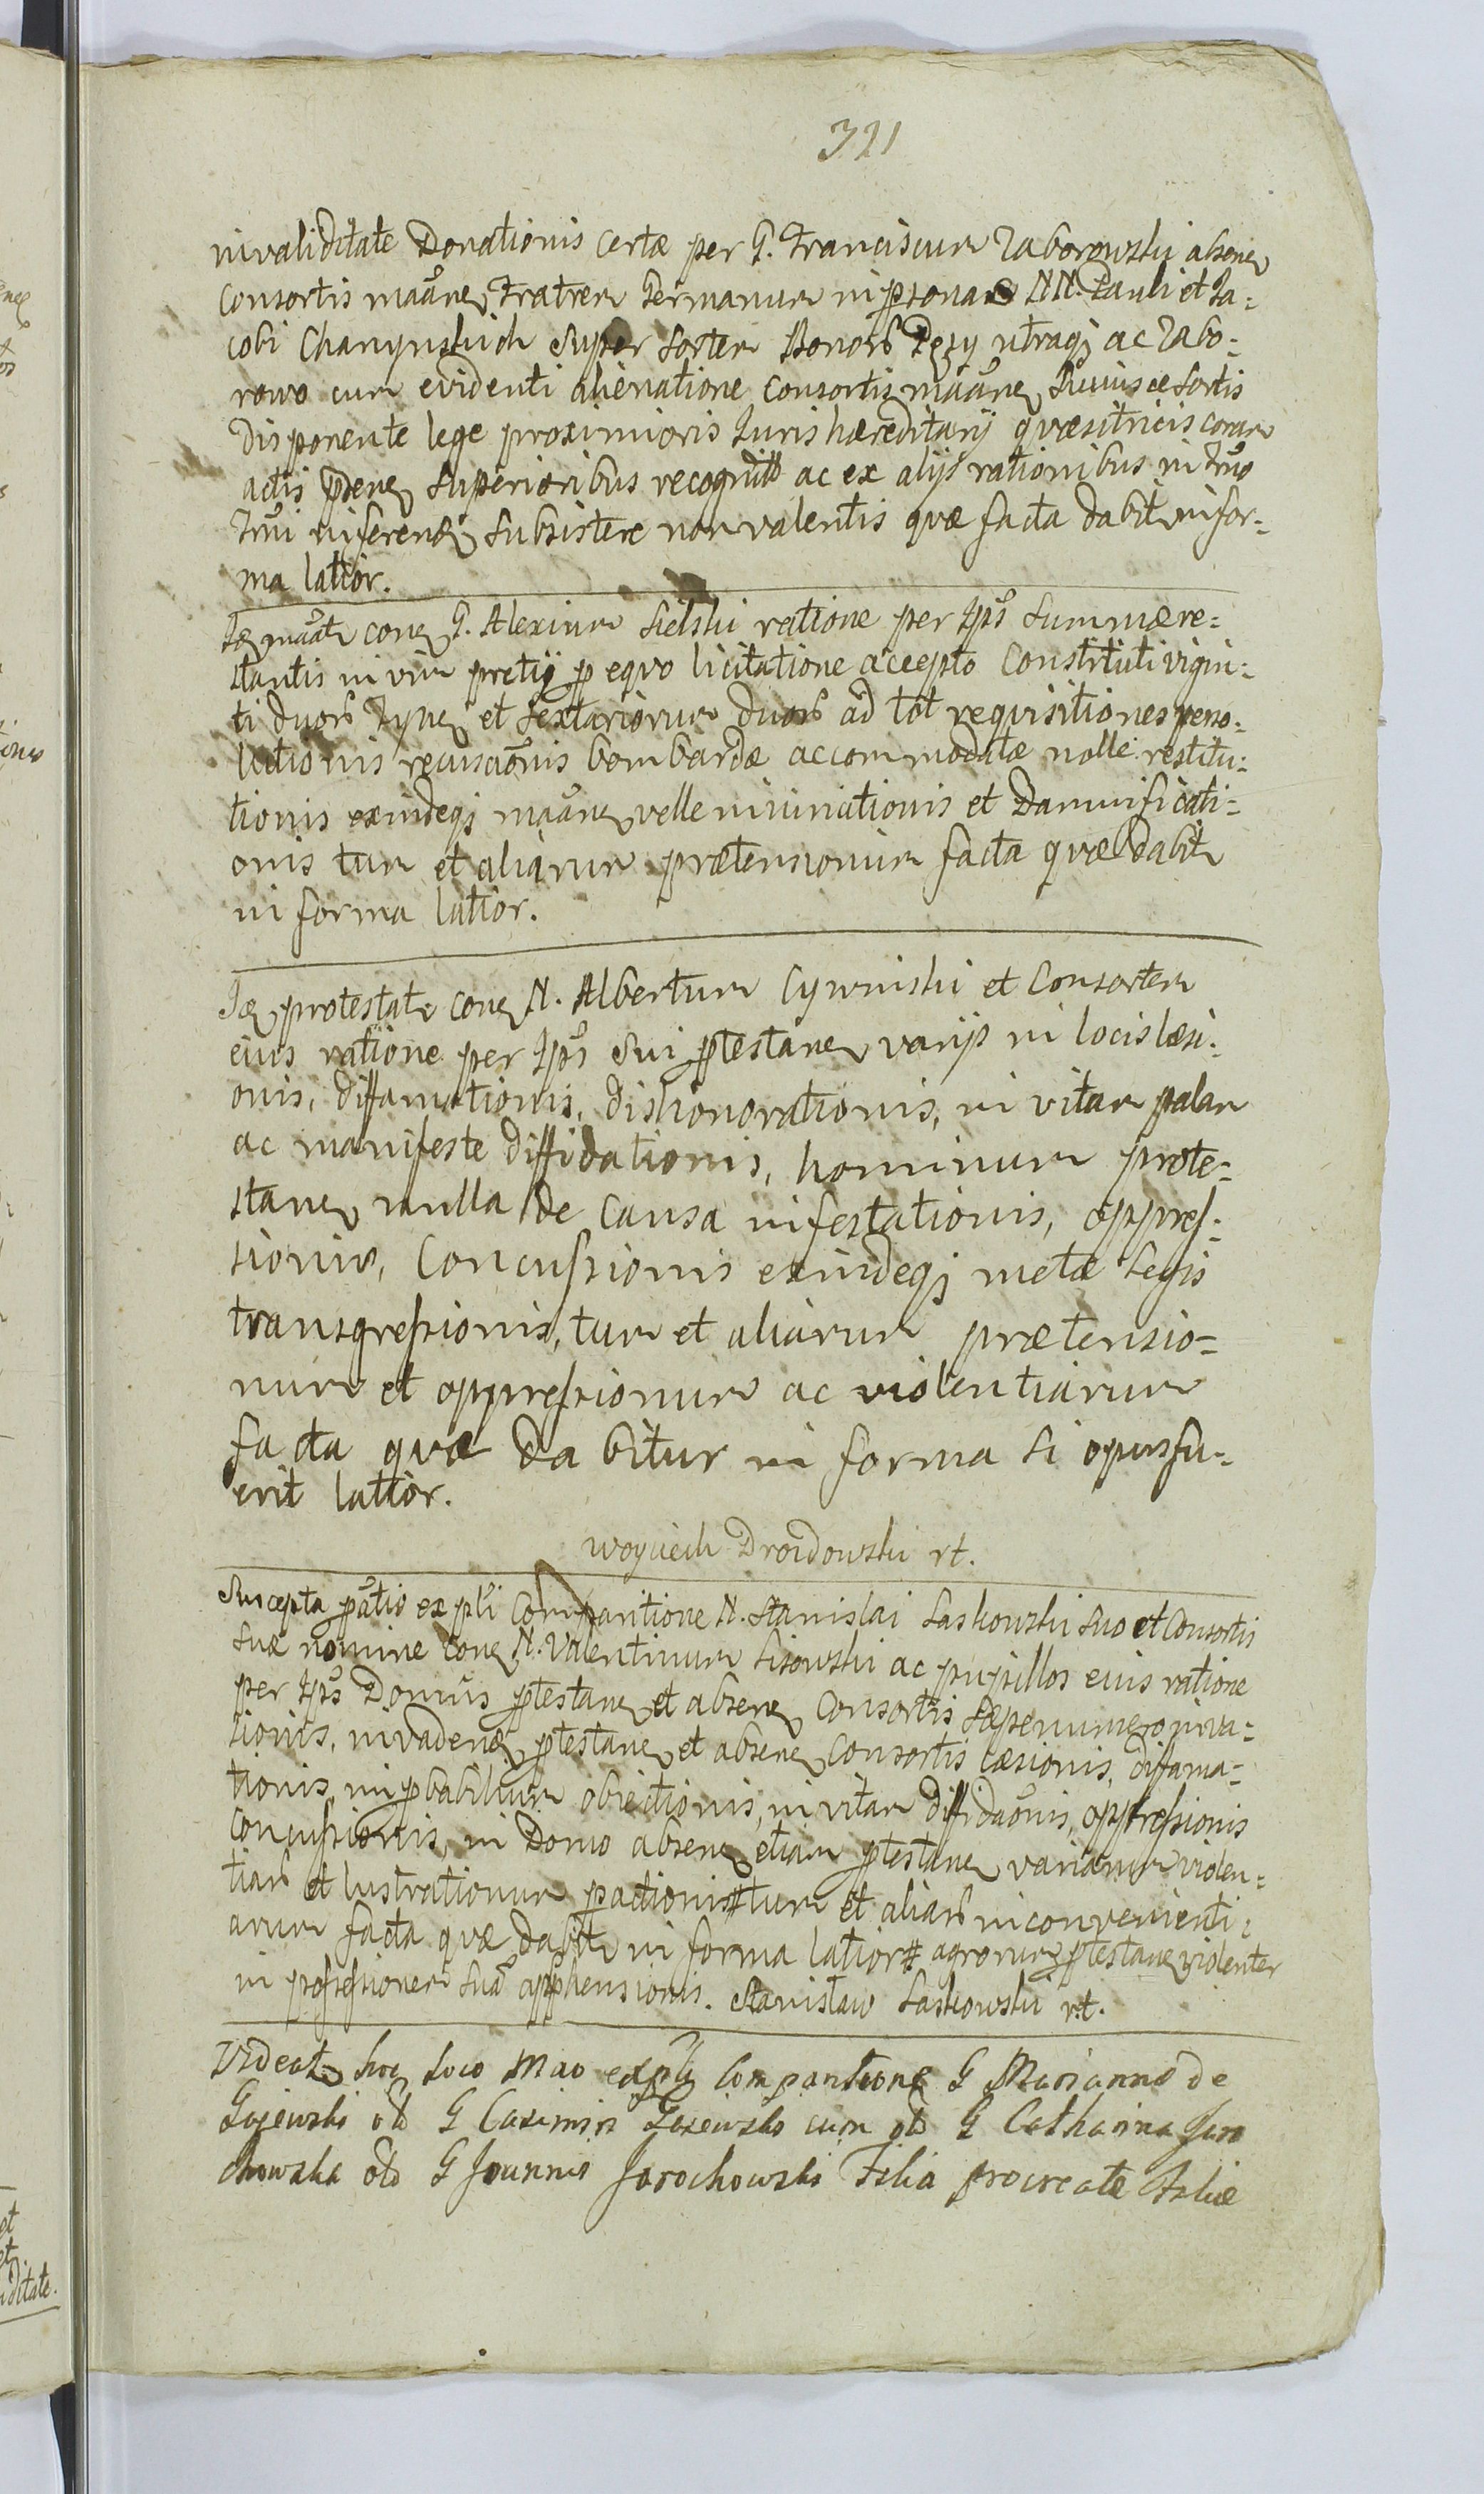 321
invaliditate Donationis certæ per G. Franciscum Zaborowski absenz
Consortis mãnez Fratrem Germanum in psonas NN. Pauli et Ja=
cobi Chamynskich Super Sortem Bonorũ Dezy utraqz ac Zabo=
rowo cum evidenti alienatione Consortis mãnez huiusce Sortis
disponente lege proximioris Juris hæreditarÿ quæsitricis coram
actis psenz Superioribus recognit ac ex alijs rationibus in Trno
Trni inferend Subsistere non valentis quæ facta dabitr in for=
ma latior.
Id mãatr conz G. Alexium Sielski ratione per Ips Summæ re=
stantis in vim pretij p equo licitatione accepto Constituti vigin=
ti duorũ Tynz et Sextariorum duorũ ad tot requisitiones perso=
lutionis recusãonis bombardæ accommodatæ nolle restitu=
tionis exindeqz mãnez velle iniuriationis et Damnificati=
onis tum et aliarum prætensionum facta quæ dabitr
in forma latior.
Id protestatr conz N. Albertum Cywinski et Consortem
eius ratione per Ips Sui ptestanz varijs in locis læsi=
onis, diffamationis, dishonorationis, in vitam palam
ac manifeste diffidationis, hominum prote=
stanz nulla de causa infestationis, oppres=
sionis, Concussionis exindeqz metæ Legis
transgressionis, tum et aliarum prætensio=
num et oppressionum ac violentiarum
facta quæ dabitur in forma si opus fu=
erit latior.
Woyciech Drozdowski rt.
Suscepta ptatio ex pli Comparitione N. Stanislai Laskowski Suo et Consortis
Suæ nomine conz N. Valentinum Lisowski ac pupillos eius ratione
per Ips Domus ptestanz et absenz Consortis sæpenumero inva=
sionis, invadend ptestanz et absenz Consortis læsionis, difama=
tionis, improbabilium obiectionis, in vitam diffidãonis, oppressionis
Concussionis, in Domo absenz etiam ptestanz variarum violen=
tiarũ et lustrationum pactionis # tum et aliarũ inconvenienti=
arum facta quæ dabitr in forma latior # agrorum ptestanz violenter
in possessionem suã apphensionis. Stanisław Laskowski rt.
Videatr hoc loco Mao ex pli Comparitione G Marianna de
Gajewski olo G Casimiri Gajewski cum olo G Catharina Jaro
chowska olo G Joannis Jarochowski Filia procreatæ Filiæ